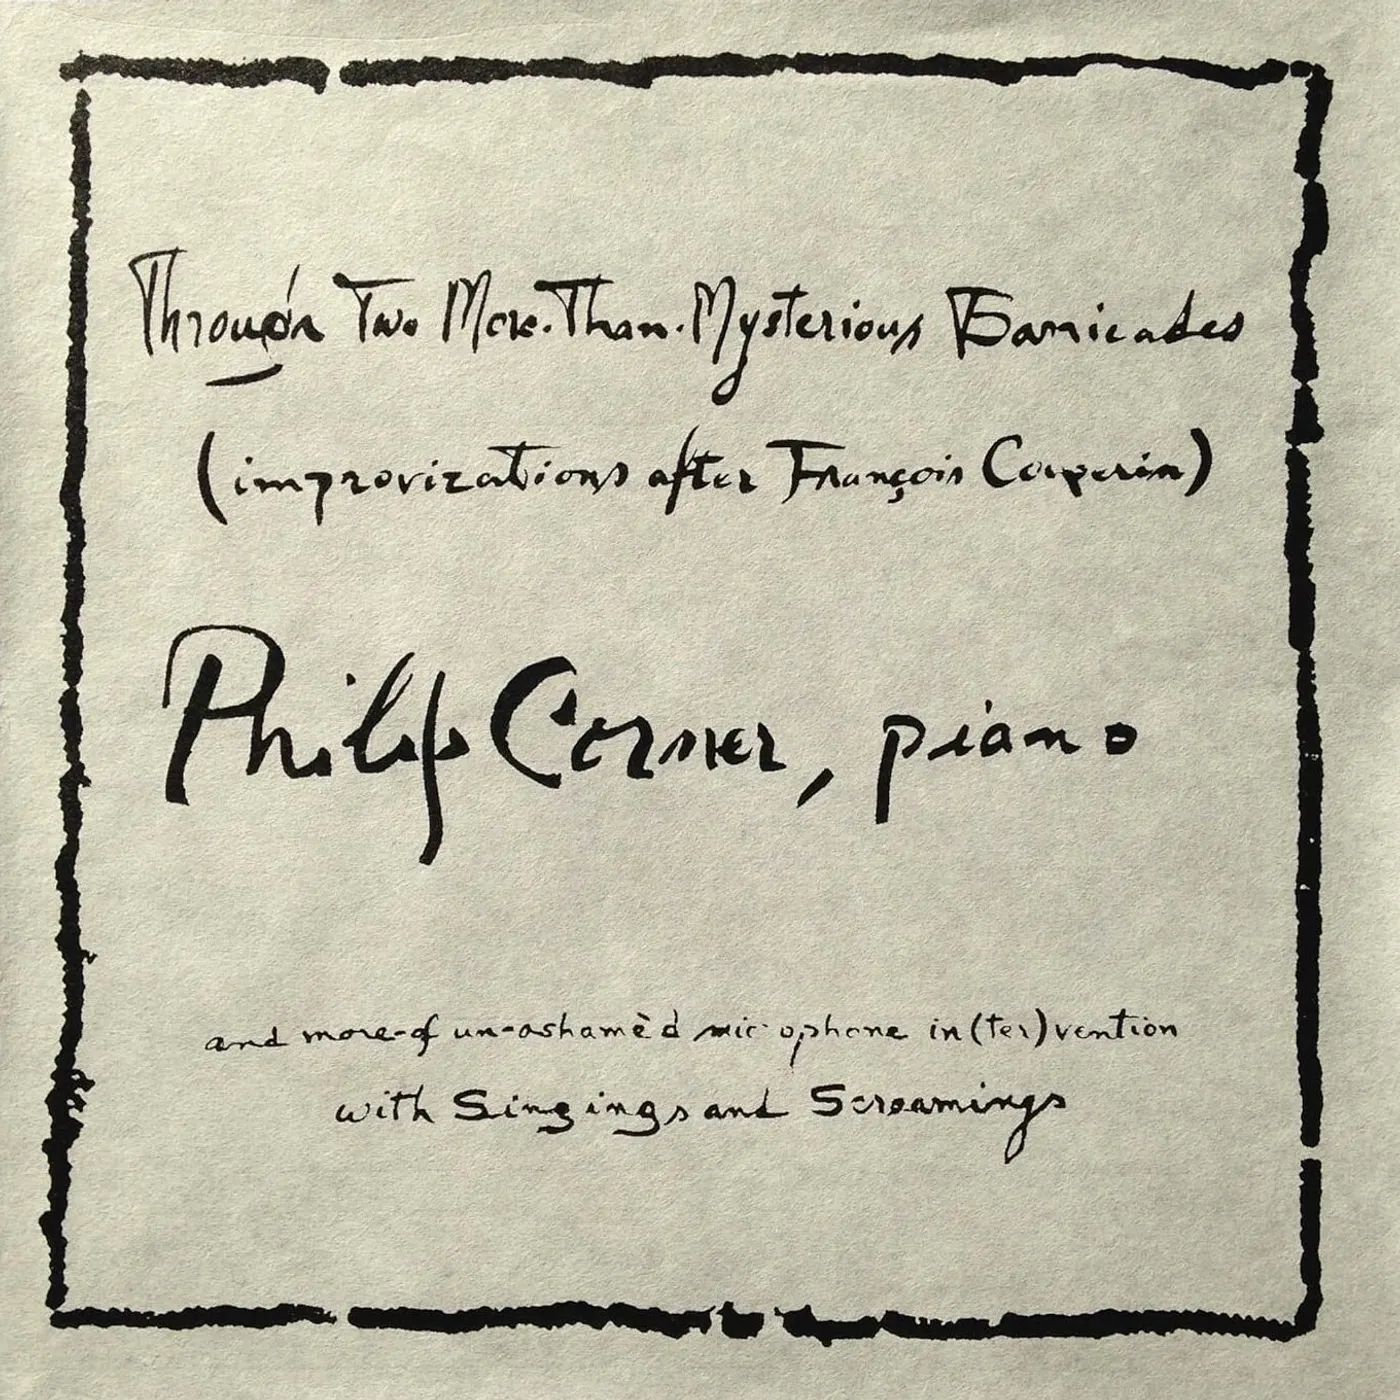 Through Two More-Than-Mysterious Barricades
(improvizations after François Couperin)
Philip Corner, piano
and more-of un-ashamèd microphone in(ter)vention
with Singings and Screamings